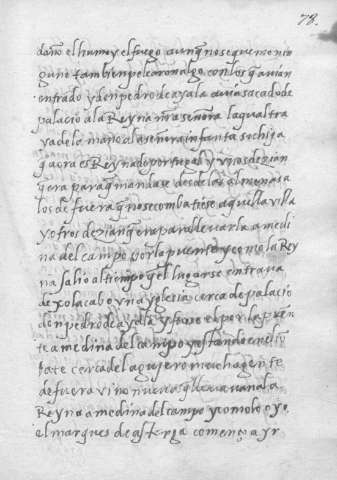 78.
el humo y el fuego aunq̃ no se quemo nin
guno tambien pelearon algo con los q̃ avian
entrado y don pedro de ayala avia sacado de
palacio a la Reyna nr̃a señora la qual tra
ya de la mano a la señora infanta su hija
q̃ aora es Reyna de portugal y unos dezian
q̃ era para q̃ mandase desde las almenas a
los de fuera q̃ no se combatiese aquella villa
y otros dezian q̃ era para llevarla a medi
na del campo por la puente y como la Rey
na salio al tiempo q̃ el lugar se entrava
de yglesia cerca de palacio
don pedro de ayala y fuese por la puen
te a medina del campo y estando en
parte cerca del agujero mucha gente
de fuera vino nueva q̃ llevavan a la
Reyna a medina del campo y como lo oyo
el marques de astorga començo a yr